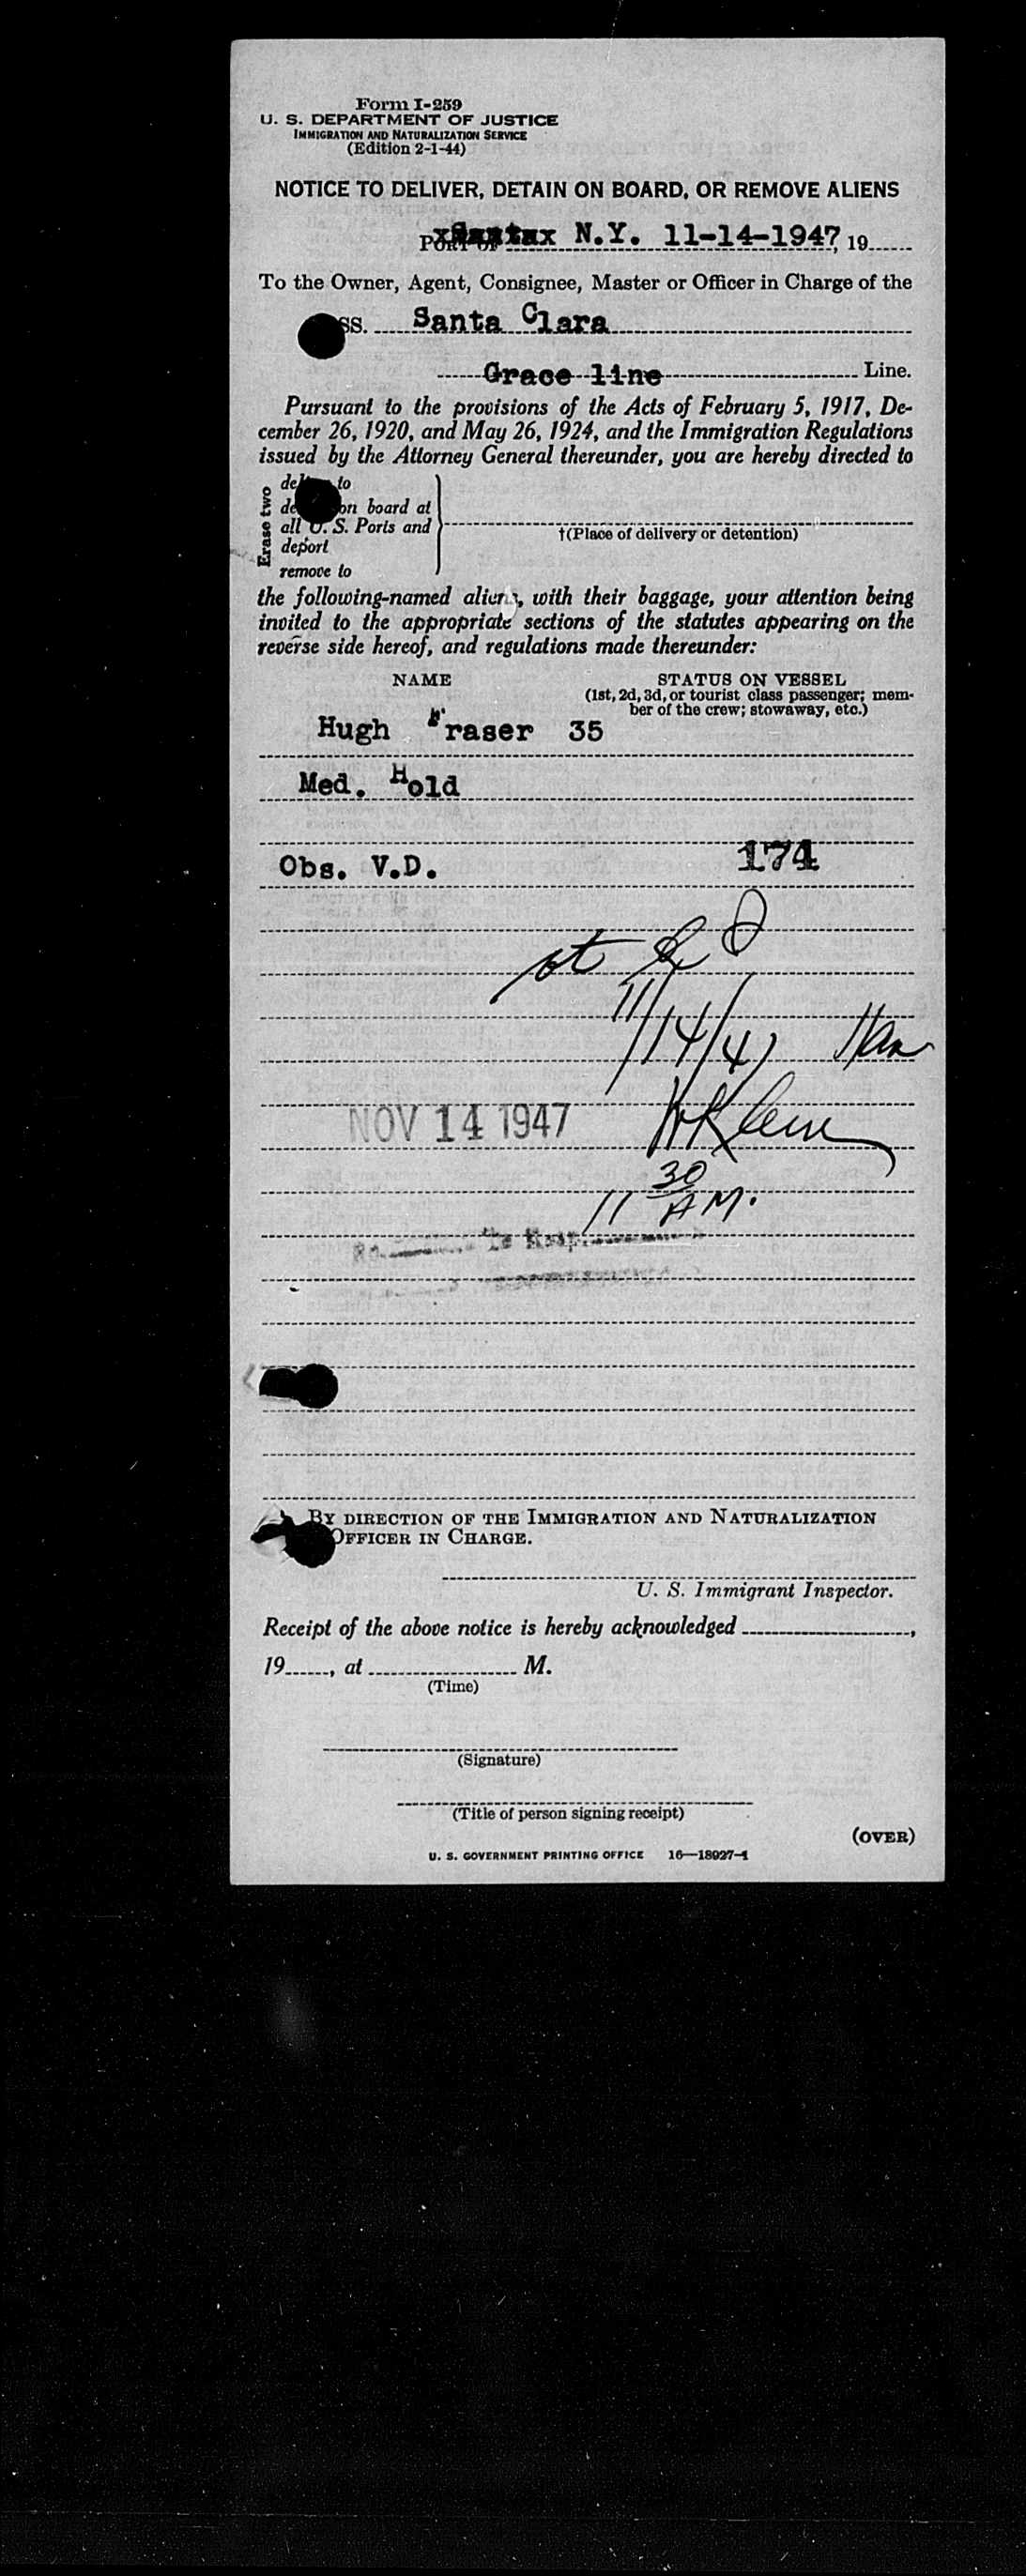 Form I-259
U. S. DEPARTMENT OF JUSTICE
IMMIGRATION AND NATURALIZATION SERVICE
(Edition 2-1-44)
NOTICE TO DELIVER, DETAIN ON BOARD, OR REMOVE ALIENS
N.Y. 11-14-1947, 19
To the Owner, Agent, Consignee, Master or Officer in Charge of the
SS. Santa Clara
Grace line Line.
Pursuant to the provisions of the Acts of February 5, 1917, De-
cember 26, 1920, and May 26, 1924, and the Immigration Regulations
issued by the Attorney General thereunder, you are hereby directed to
Erase two
to
on board at
all U. S. Ports and
deport
remove to
†(Place of delivery or detention)
the following-named aliens, with their baggage, your attention being
invited to the appropriate sections of the statutes appearing on the
reverse side hereof, and regulations made thereunder:
NAME STATUS ON VESSEL
(1st, 2d, 3d, or tourist class passenger; mem-
ber of the crew; stowaway, etc.)
Hugh Fraser 35
Med. Hold
Obs. V.D. 174
11/14/47
NOV 14 1947
11 30 A M.
To Hosp.
BY DIRECTION OF THE IMMIGRATION AND NATURALIZATION
OFFICER IN CHARGE.
U. S. Immigrant Inspector.
Receipt of the above notice is hereby acknowledged ,
19 , at M.
(Time)
(Signature)
(Title of person signing receipt)
(OVER)
U. S. GOVERNMENT PRINTING OFFICE 16—18027-1